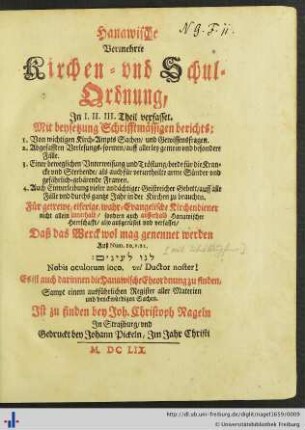 N 9. F. ii.
Hanawische
Vermehrte
Kirchen- vnd Schul-
Ordnung,
In I. II. III. Theil verfasset.
Mit beysetzung Schrifftmässigen berichts;
1. Von wichtigen Kirch-Ampts Sachen/ und Gewissensfragen.
2. Abgefassten Vorlesungs-formen/ auff allerley gemeine und besondere
Fälle.
3. Einer beweglichen Unterweisung und Tröstung/ beede für die Kran-
cke und Sterbende; als auch für verurtheilte arme Sünder und
gefährlich-gebärende Frawen.
4. Auch Einverleibung vieler andächtiger Geistreicher Gebett/ auff alle
Fälle und durchs gantze Jahr in der Kirchen zu brauchen,
Für getrewe, eiferige wahr-Evangelische Kirchendiener
nicht allein innerhalb/ sondern auch ausserhalb Hanawischer
Herrschafft/ also außgerüstet und verfasset/
Daß das Werck wol mag genennet werden
Auß Num. 10, v. 31.
לנו לעינים:
Nobis oculorum loco. vel Ductor noster!
Es ist auch darinnen die Hanawische Eheordnung zu finden.
Sampt einem außführlichen Register aller Materien
und denckwürdigen Sachen.
Ist zu finden bey Joh. Christoph Nageln
In Straßburg/ und
Gedruckt bey Johann Pickeln/ Im Jahr Christi
M. DC LIX.
http://dl.ub.uni-freiburg.de/diglit/nagel1659/0009
© Universitätsbibliothek Freiburg